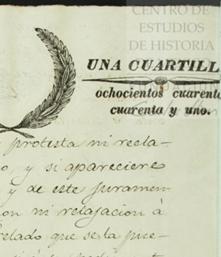 CENTRO DE
ESTUDIOS
DE HISTORIA
UNA CUARTILL
ochocientos cuarent
cuarenta y uno.
protesta ni recla-
o, y si apareciere
y de este juramen-
on ni relajacion à
relado que se la pue-